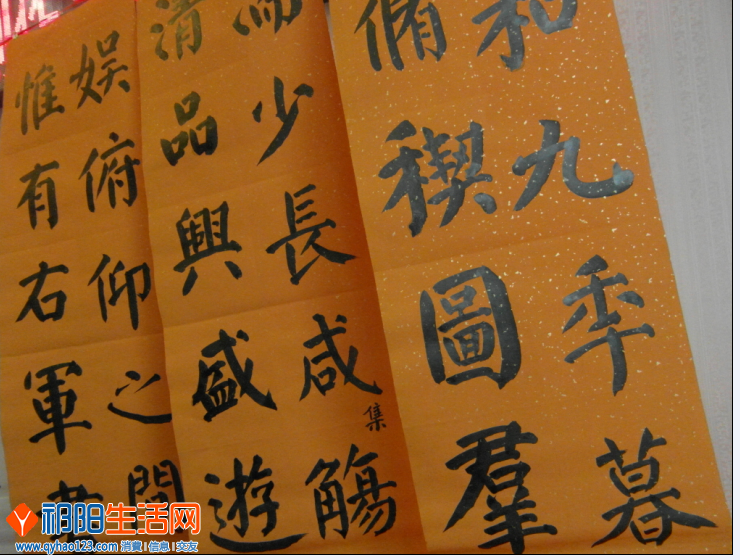 和九年暮
脩禊圖羣
而少長咸集觴
清品興盛遊
娛俯仰之間
惟有右軍
祁阳生活网
www.qyhao123.com 消費 | 信息 | 交友